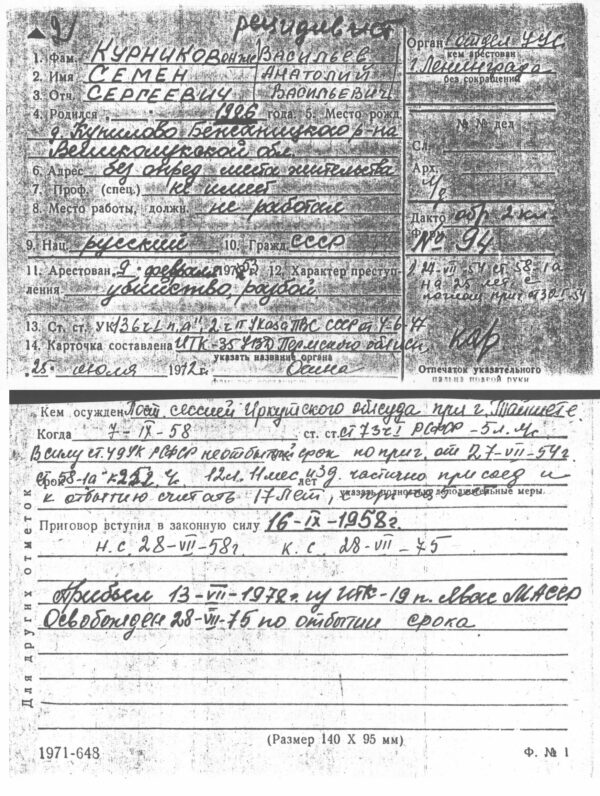 рецидивист
1. Фам. КУРНИКОВ он же ВАСИЛЬЕВ
2. Имя СЕМЕН АНАТОЛИЙ
3. Отч. СЕРГЕЕВИЧ ВАСИЛЬЕВИЧ
4. Родился 1926 года. 5. Место рожд.
д. Кунилово р-на
Великолукской обл.
6. Адрес без опред места жительства
7. Проф. (спец.) не имеет
8. Место работы, должн. не работал
9. Нац. русский 10. Гражд. СССР
11. Арестован 9 февраля 12. Характер преступ-
ления убийство, разбой
13. Ст. ст. УК 136 ч1 п. "а", 2 ч II Указа ПВС СССР от 4-6-47
14. Карточка составлена ИТК-35 Пермской области
указать название органа
25 июля 1972 г. Осина
Орган отдел УИ
кем арестован
г. Ленинграда
без сокращений
№ № дел
Сл.
Арх.
Дакто обр 2 кл.
Форм.
№ 94
24-VII-54 ст. 58-1а
на 25 лет с
погл. приг. от 30-I-54
кар
Отпечаток указательного
пальца правой руки
Кем осужден Пост. сессией Иркутского облсуда при г. Тайшете.
Когда 7-IX-58 ст. ст. ст 73 ч I РСФСР -5 л. л/с
В силу ст. 49 УК РСФСР неотбытый срок по приг. от 27-VII-54 г.
срок лет 12 л. 11 мес. и 3 д. частично присоед и
к отбытию считать 17 лет,
указать полностью дополнительные меры.
Приговор вступил в законную силу 16-IX-1958 г.
Н.С. 28-VII-58 г. К.С. 28-VII-75
Прибыл 13-VII-1972 г. из ИТК-19 п. Явас МАССР
Освобожден 28-VII-75 по отбытии срока
Для других отметок
(Размер 140 X 95 мм)
1971-648 Ф. № 1